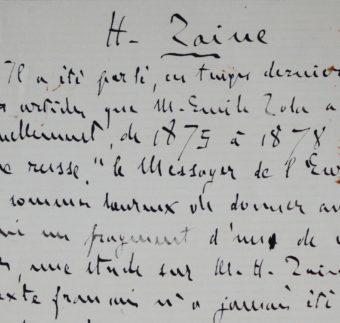 H. Taine
Il a été parlé, ces temps derniers
articles que M. Emile Zola a
mensuellement, de 1875 à 1878
russe, "le Messager de l'Eur
sommes heureux de donner au
un fragment d'une de
une étude sur M. H. Taine
texte français n'a jamais été